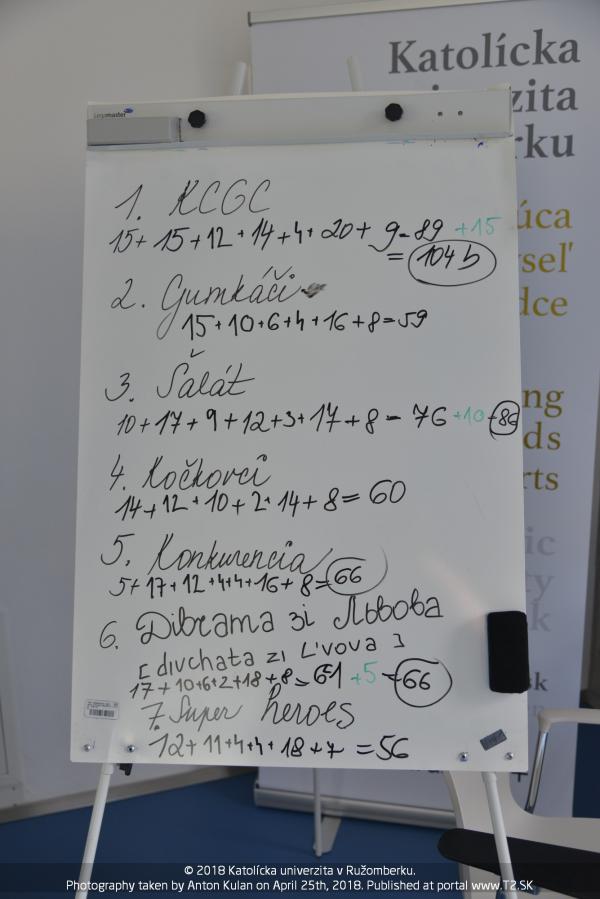 Katolícka
zita
rku
úca
seľ
dce
ng
ds
rts
ic
ty
sk
1. KCGC
15+ 15+12+14+4+20+ 9=89 +15
= 104 b
2. Gumkáči
15+10+6+4+16+8=59
3. Šalát
10+17+9+12+3+17+8= 76 +10 =86
4. Kočkovci
14+12+10+2+14+8=60
5. Konkurencia
5+17+12+4+4+16+8=66
6. Дівчата зі Львова
[divchata zi L'vova]
17+10+6+2+18+8=61 +5 =66
7. Super heroes
12+11+4+4+18+7=56
© 2018 Katolícka univerzita v Ružomberku.
Photography taken by Anton Kulan on April 25th, 2018. Published at portal www.T2.SK